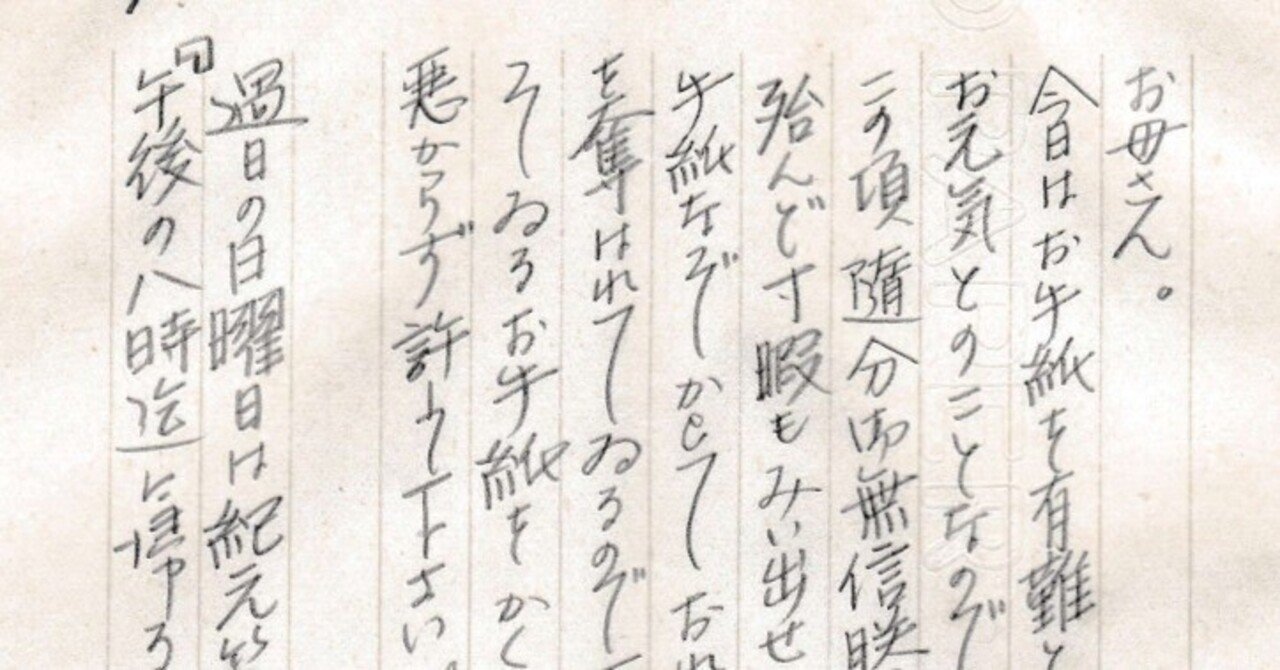 お母さん。
今日はお手紙を有難と
お元気とのことなので
この頃隨分御無信
殆んど寸暇もみい出せ
手紙なぞかとて お
を奪はれてゐるので
そーゐるお手紙をかく
悪からず許して下さい。
過日の日曜日は紀元
午後の八時迄に帰る